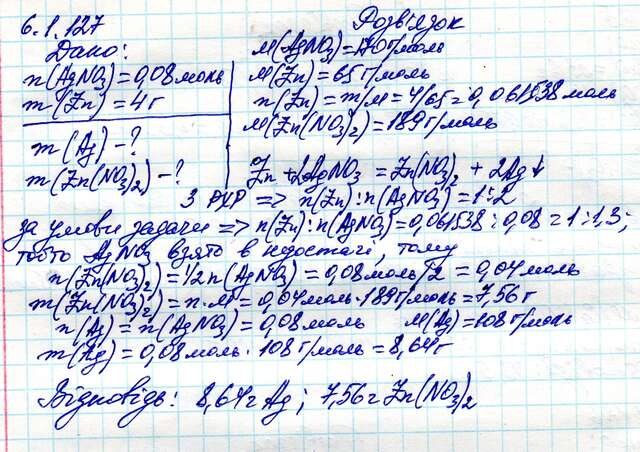 6.1.127
Розв'язок
Дано:
n(AgNO3)=0,08 моль
m(Zn)=4г
m(Ag)-?
m(Zn(NO3)2)-?
M(AgNO3)=170г/моль
M(Zn)=65г/моль
n(Zn)=m/M=4/65=0,061538моль
M(Zn(NO3)2)=189г/моль
Zn+2AgNO3=Zn(NO3)2+2Ag↓
З РХР => n(Zn):n(AgNO3)=1:2
за умови задачи => n(Zn):n(AgNO3)=0,061538:0,08=1:1,3;
тобто AgNO3 взято в недостачі, тому
n(Zn(NO3)2)=1/2n(AgNO3)=0,08моль/2=0,04моль
m(Zn(NO3)2)=n·M=0,04моль·189г/моль=7,56г
n(Ag)=n(AgNO3)=0,08моль M(Ag)=108г/моль
m(Ag)=0,08моль·108г/моль=8,64г
Відповідь: 8,64г Ag; 7,56г Zn(NO3)2